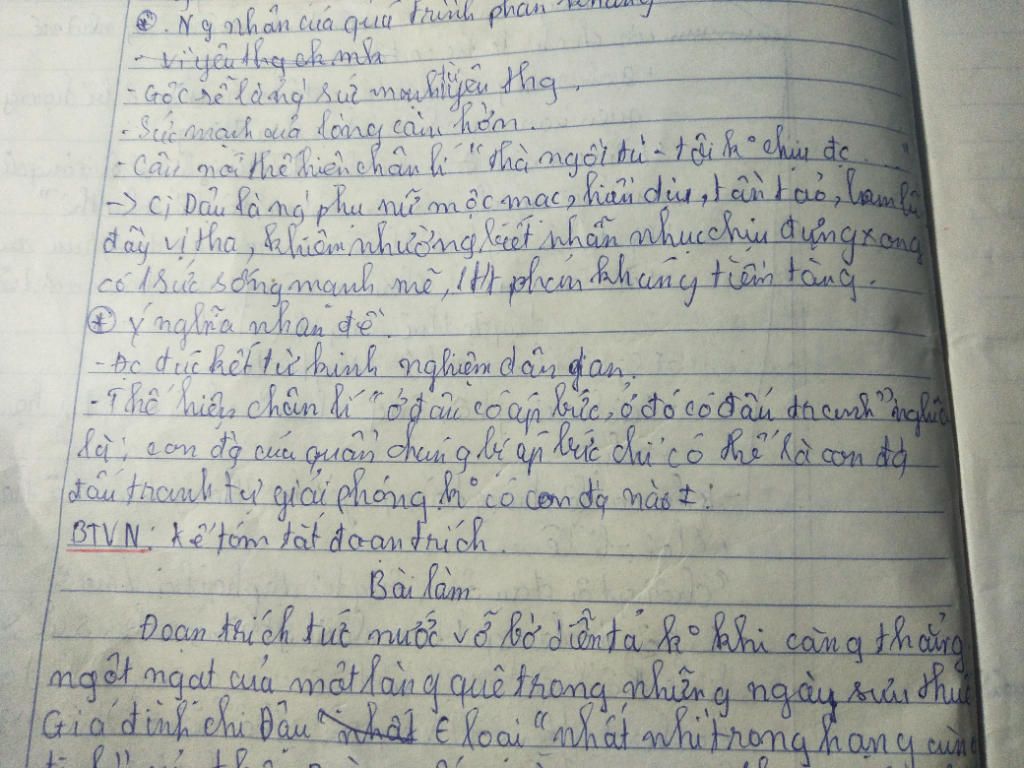 ⊛. Ng nhân của quá trình phản kháng
- Vì yêu thg ck mh
- Gốc rễ là ng` sức mạnh từ yêu thg.
- Sức mạnh của lòng căm hờn.
- Câu nói thể hiện chân lí "thà ngồi tù - tôi k° chịu đc..."
-> C, Dậu là ng` phụ nữ mộc mạc, hiền dịu, tần tảo, lam lũ
đầy vị tha, khiêm nhường biết nhẫn nhục chịu đựng xong
có 1 sức sống mạnh mẽ, 1 tt phản kháng tiềm tàng.
⊛ Ý nghĩa nhan đề.
- Đc đúc kết từ kinh nghiệm dân gian.
- Thể hiện chân lí "ở đâu có áp bức, ở đó có đấu tranh" nghĩa
là: con đg của quần chúng bị áp bức chỉ có thể là con đg
đấu tranh tự giải phóng k° có con đg nào ≠.
BTVN: kể tóm tắt đoạn trích.
Bài làm
Đoạn trích tức nước vỡ bờ diễn tả k° khí căng thẳng
ngột ngạt của một làng quê trong những ngày sưu thuế
Gia đình chị Dậu nhất ∈ loại "nhất nhì trong hạng cùng